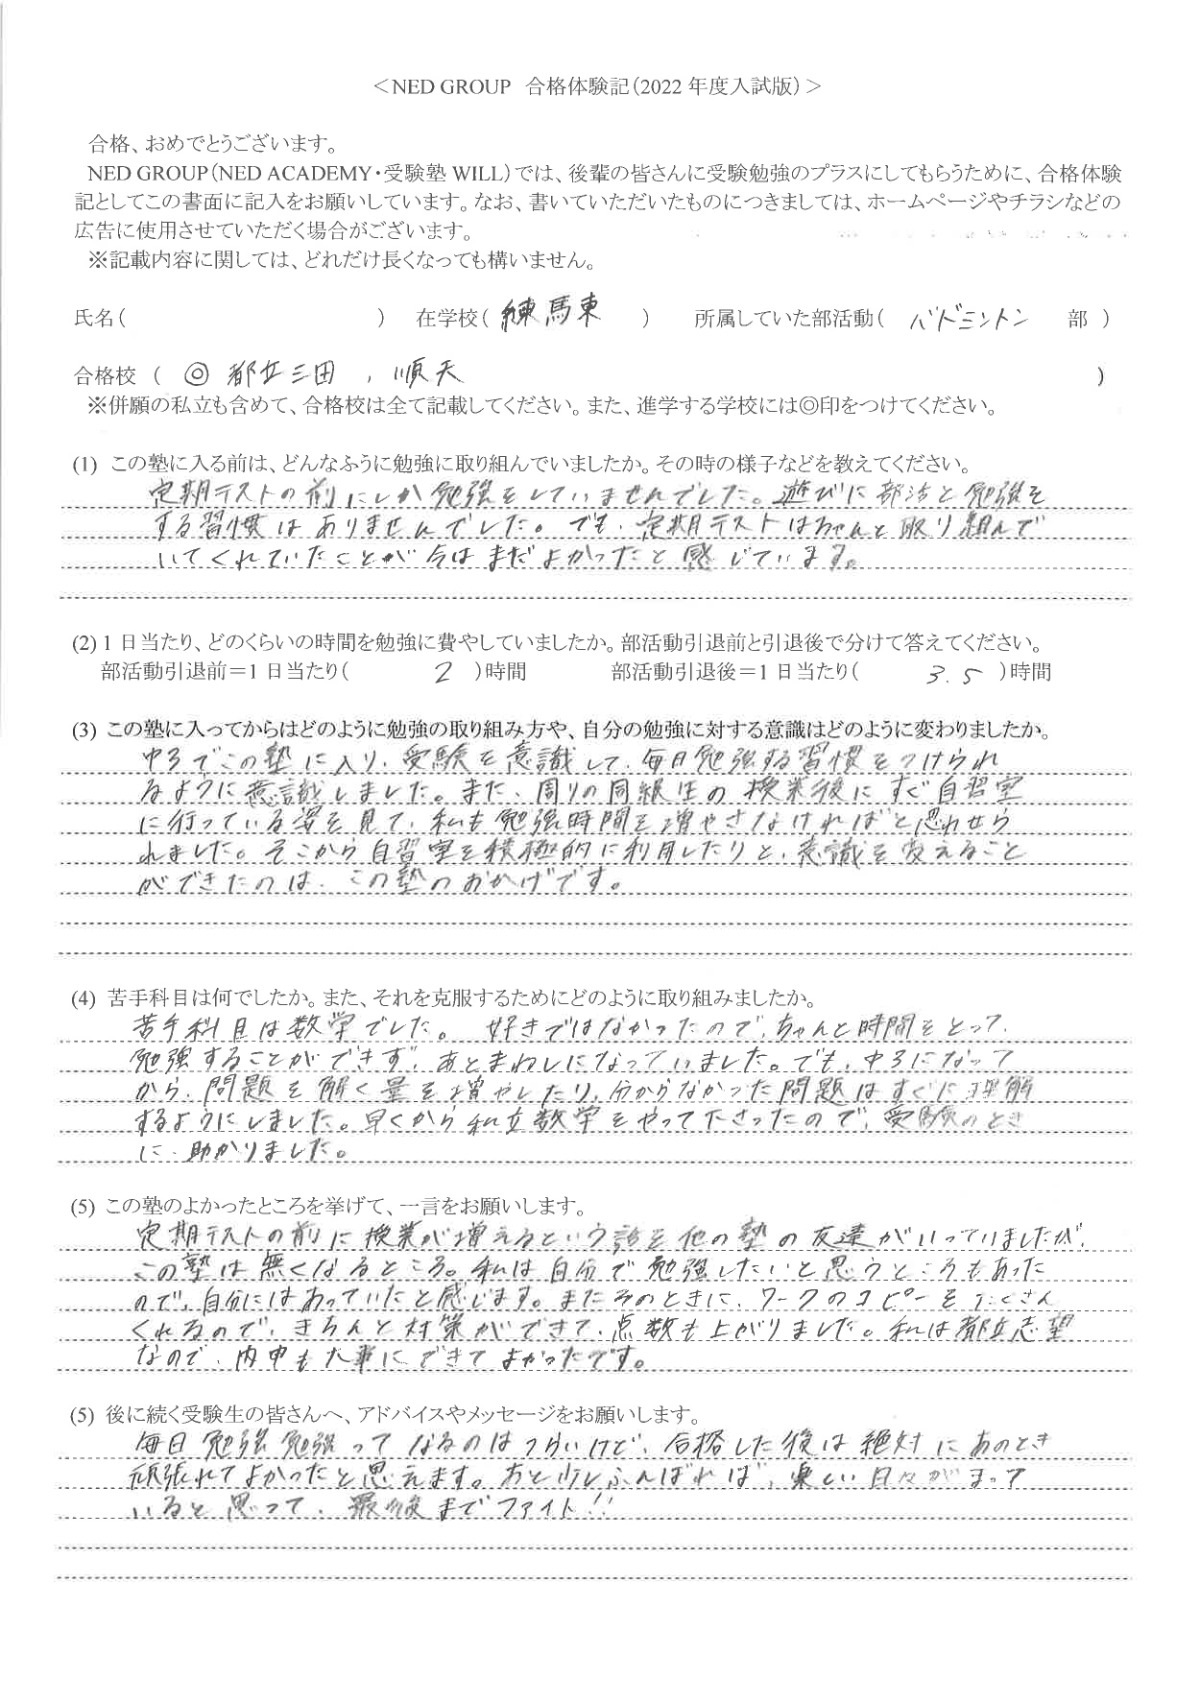 ＜NED GROUP 合格体験記（2022 年度入試版）＞
合格、おめでとうございます。
NED GROUP（NED ACADEMY・受験塾 WILL）では、後輩の皆さんに受験勉強のプラスにしてもらうために、合格体験
記としてこの書面に記入をお願いしています。なお、書いていただいたものにつきましては、ホームページやチラシなどの
広告に使用させていただく場合がございます。
※記載内容に関しては、どれだけ長くなっても構いません。
氏名（ ） 在学校（ 練馬東 ） 所属していた部活動（ バドミントン 部 ）
合格校 （ ◎ 都立三田 , 順天 ）
※併願の私立も含めて、合格校は全て記載してください。また、進学する学校には◎印をつけてください。
(1) この塾に入る前は、どんなふうに勉強に取り組んでいましたか。その時の様子などを教えてください。
定期テストの前にしか勉強をしていませんでした。遊びに部活と勉強を
する習慣はありませんでした。でも、定期テストはちゃんと取り組んで
いてくれていたことが今はまだよかったと感じています。
(2) 1 日当たり、どのくらいの時間を勉強に費やしていましたか。部活動引退前と引退後で分けて答えてください。
部活動引退前＝1 日当たり（ 2 ）時間 部活動引退後＝1 日当たり（ 3.5 ）時間
(3) この塾に入ってからはどのように勉強の取り組み方や、自分の勉強に対する意識はどのように変わりましたか。
中3でこの塾に入り、受験を意識して、毎日勉強する習慣をつけられ
るように意識しました。また、周りの同級生の授業後にすぐ自習室
に行っている姿を見て、私も勉強時間を増やさなければと思わせら
れました。そこから自習室を積極的に利用したりと、意識を変えること
ができたのは、この塾のおかげです。
(4) 苦手科目は何でしたか。また、それを克服するためにどのように取り組みましたか。
苦手科目は数学でした。好きではなかったので、ちゃんと時間をとって、
勉強することができず、あとまわしになっていました。でも、中3になって
から、問題を解く量を増やしたり、分からなかった問題はすぐに理解
するようにしました。早くから私立数学をやって下さったので、受験のとき
に、助かりました。
(5) この塾のよかったところを挙げて、一言をお願いします。
定期テストの前に授業が増えるという話を他の塾の友達がいっていましたが、
この塾は無くなるところ。私は自分で勉強したいと思うところもあった
ので、自分にはあっていたと感じます。またそのときに、ワークのコピーをたくさん
くれるので、きちんと対策ができて、点数も上がりました。私は都立志望
なので、内申も大事にできてよかったです。
(5) 後に続く受験生の皆さんへ、アドバイスやメッセージをお願いします。
毎日勉強勉強ってなるのはつらいけど、合格した後は絶対にあのとき
頑張れてよかったと思えます。あと少しふんばれば、楽しい日々がまって
いると思って、最後までファイト!!